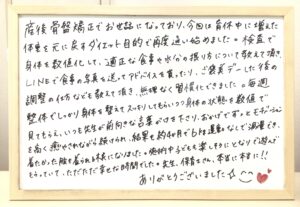 産後骨盤矯正でお世話になっており、今回は育休中に増えた
体重を元に戻すダイエット目的で再度通い始めました。検査で
身体を数値化して、適正な食事や水分の摂り方について教えて頂き、
LINEで食事の写真を送ってアドバイスを貰ったり、ご褒美デーした後の
調整の仕方なども教えて頂き、無理なく習慣化できました。毎週
整体でしっかり身体を整えてスッキリしてもらいつつ身体の状態を数値で
見てもらえ、いつも先生が前向きな言葉がけを下さり、おかげでずっとモチベーション
を高く癒やされながら続けられ、結果も約4か月で6kg運動なしで減量でき、
着たかった服も着られる様になりました。施術中子どもも楽しそうにとなりで遊んで
もらっていて、ただただ幸せな時間でした。先生、保育士さん、本当に本当に!!
ありがとうございました